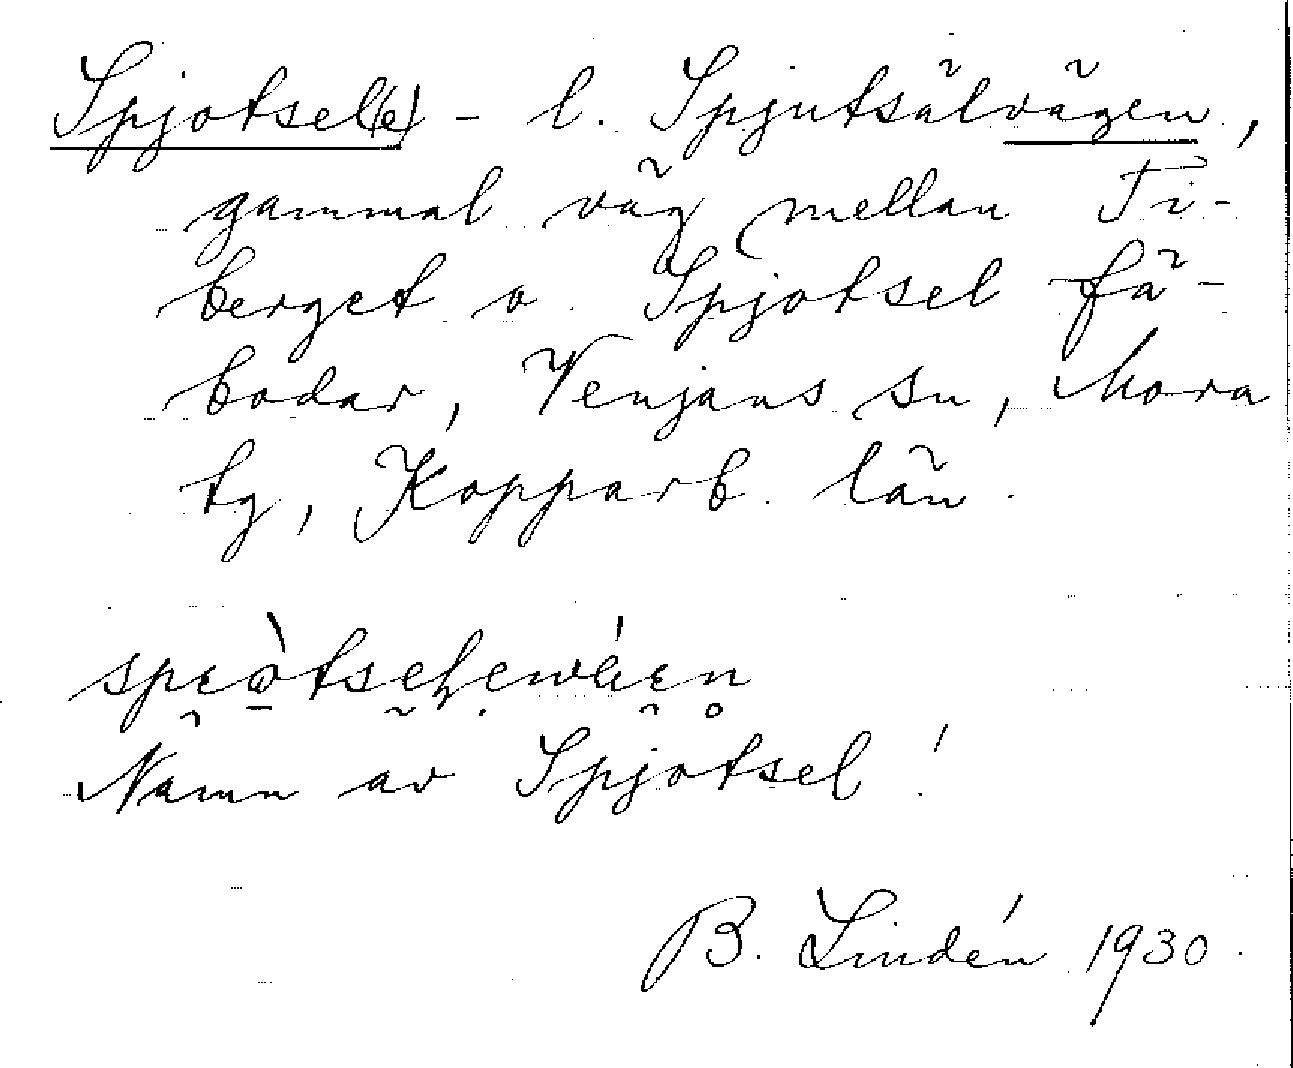 Spjotsel(e) - l. Spjutsälvägen,
gammal väg mellan Ti-
berget o. Spjotsel fä-
bodar, Venjans sn, Mora
tg, Kopparb. län.
Nämn av Spjotsel!
B. Lindén 1930.